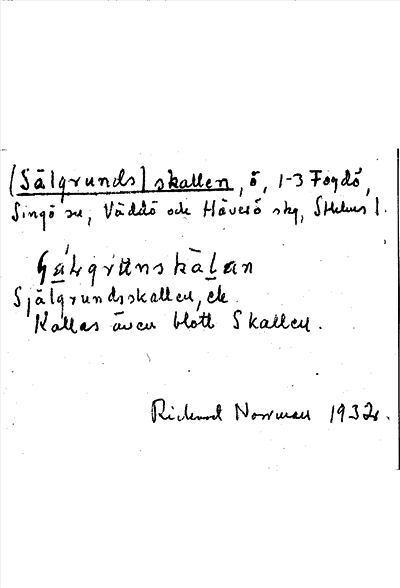 [Sälgrunds]skallen, ö, 1-3 Fogdö,
Singö sn, Väddö och Häverö skg, Sthlms l.
Själgrundsskallen, ek.
Kallas även blott Skallen.
Rickard Norrman 1932.